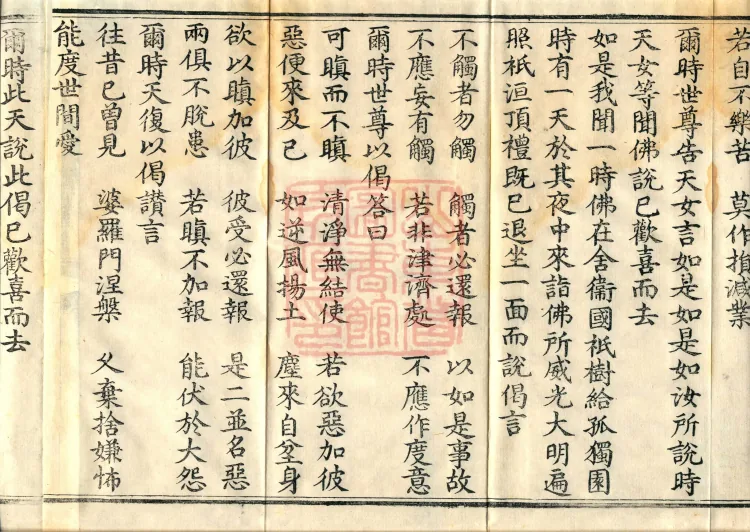 若自不樂苦　莫作損減業
爾時世尊告天女言如是如是如汝所說時
天女等聞佛說已歡喜而去
如是我聞一時佛在舍衞國祇樹給孤獨園
時有一天於其夜中來詣佛所威光大明遍
照祇洹頂禮既已退坐一面而說偈言
不觸者勿觸　觸者必還報　以如是事故
不應妄有觸　若非津濟處　不應作度意
爾時世尊以偈答曰
可瞋而不瞋　清淨無結使　若欲惡加彼
惡便來及已　如逆風揚土　塵來自坌身
欲以瞋加彼　彼受必還報　是二並名惡
兩俱不脫患　若瞋不加報　能伏於大怨
爾時天復以偈讃言
往昔已曾見　婆羅門涅槃　久棄捨嫌怖
能度世間愛
爾時此天說此偈已歡喜而去